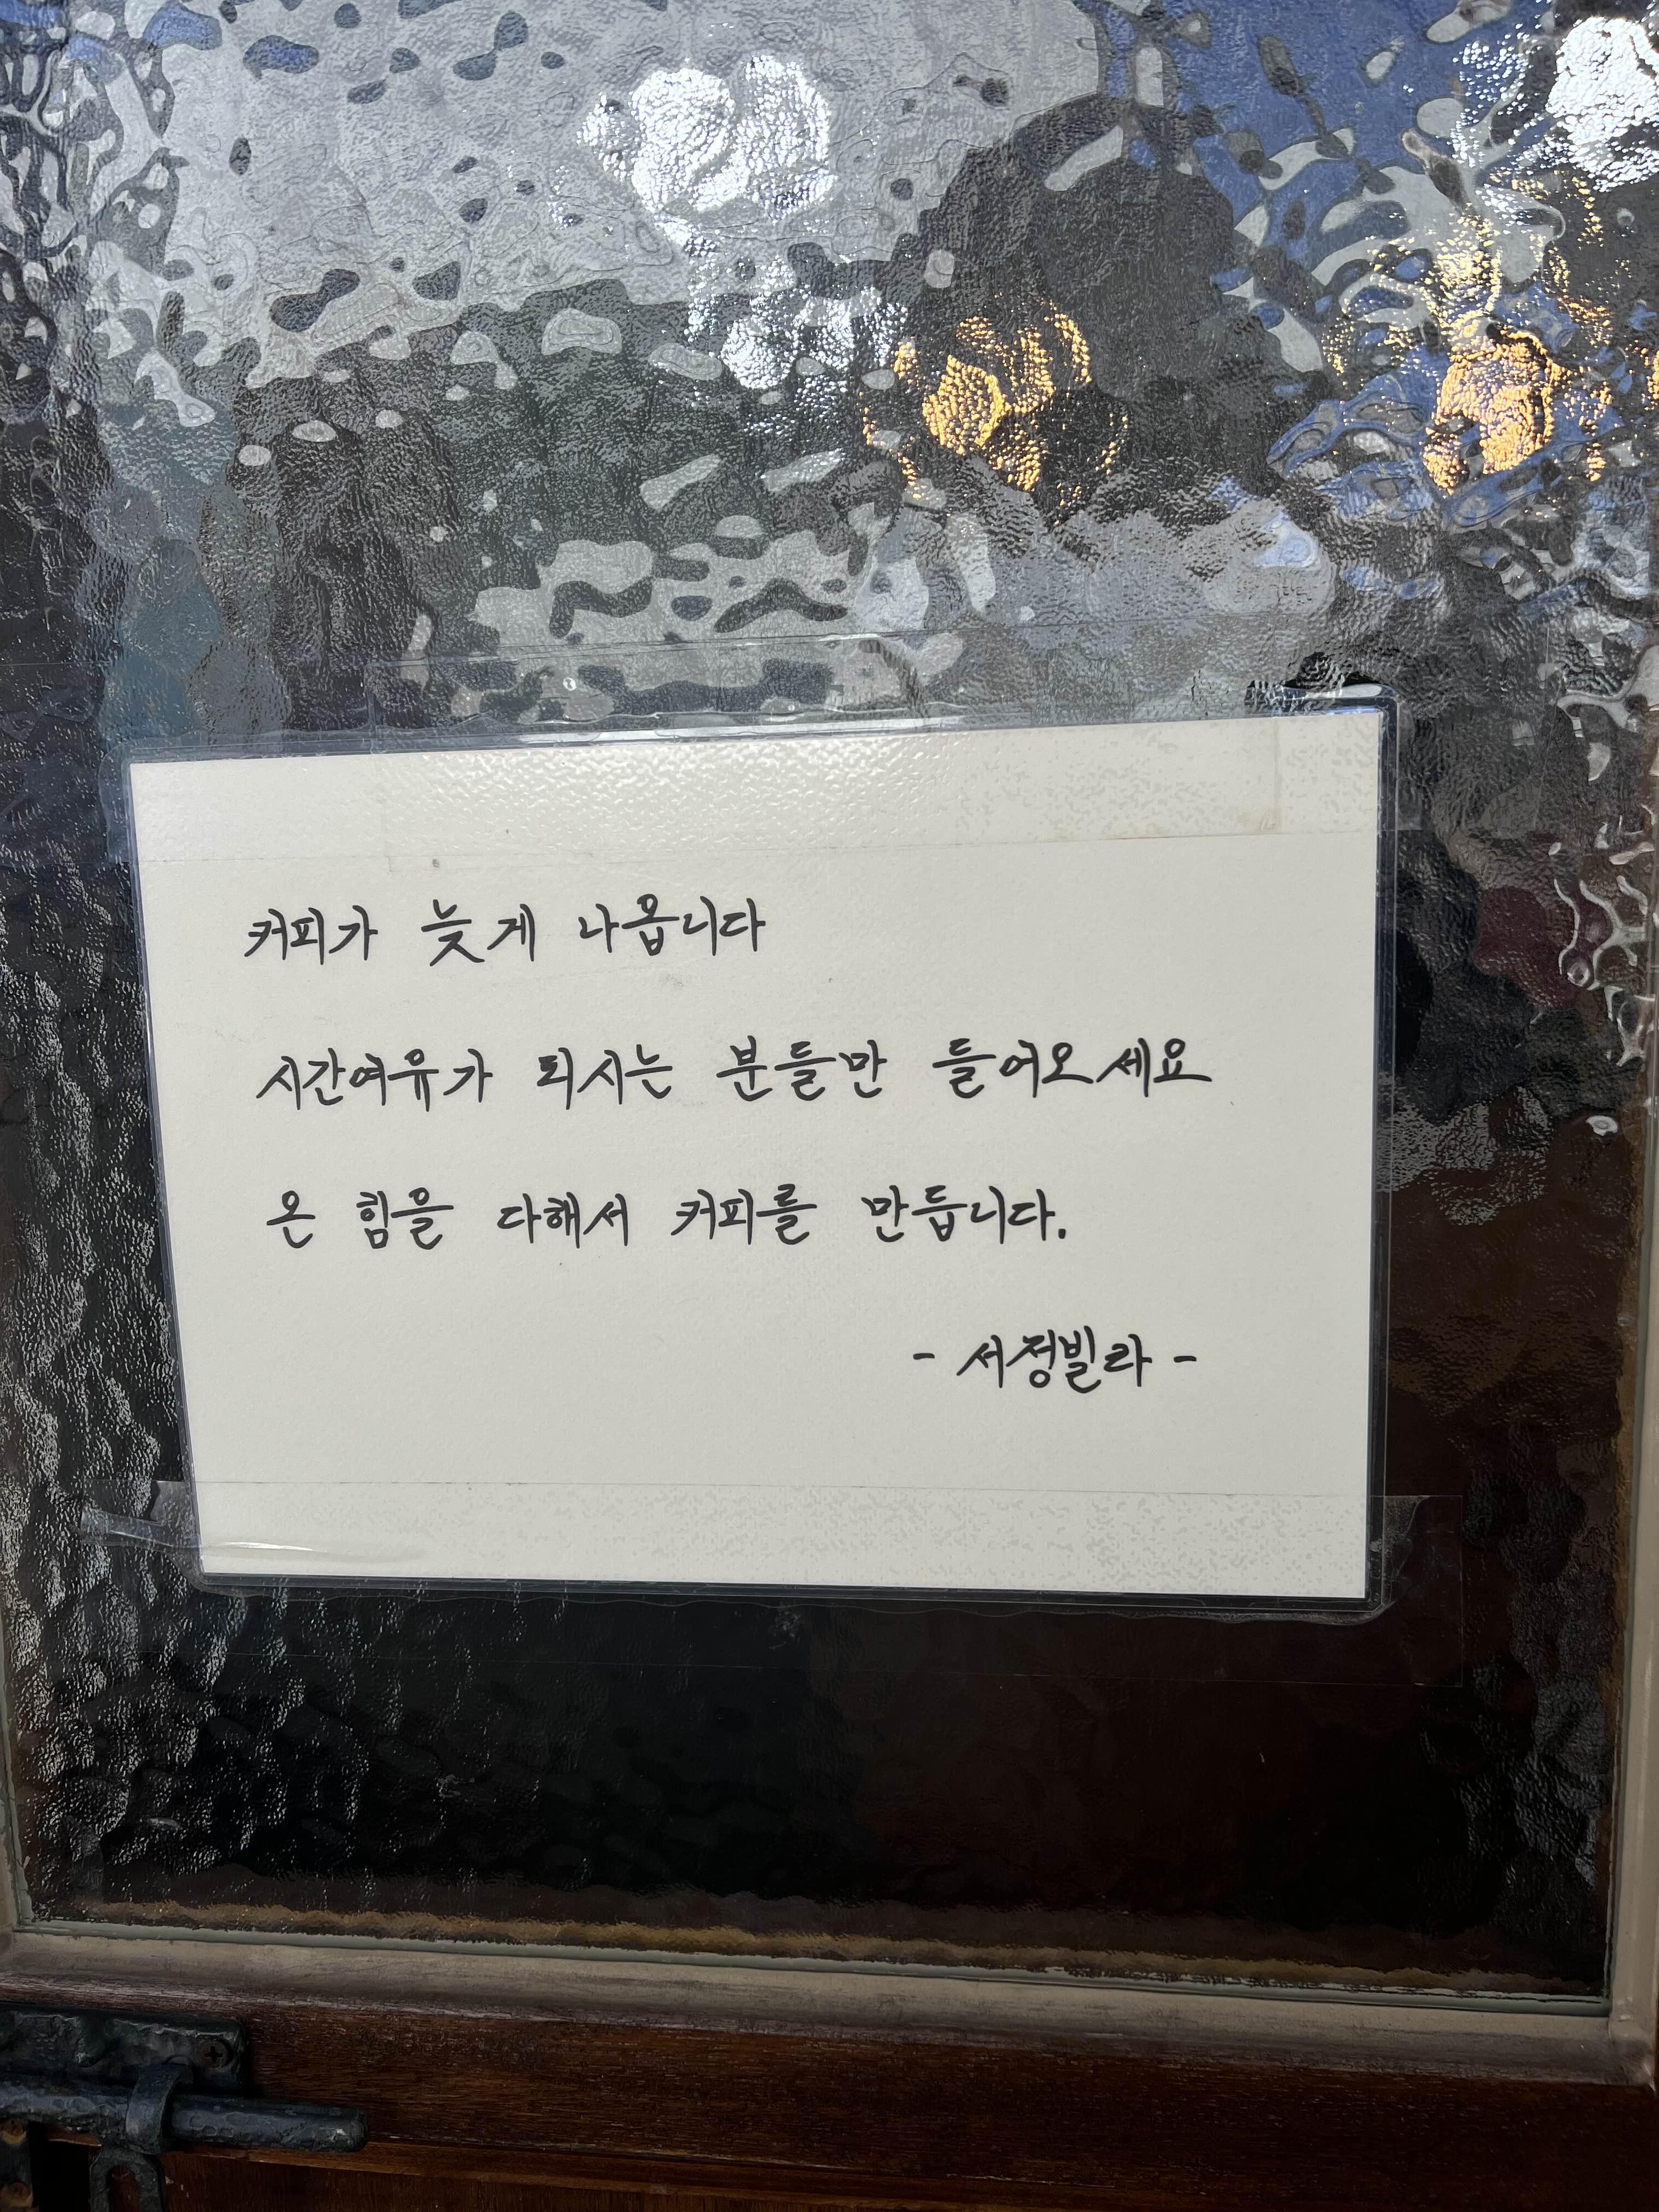 커피가 늦게 나옵니다
시간여유가 되시는 분들만 들어오세요
온 힘을 다해서 커피를 만듭니다.
- 서정빌라 -